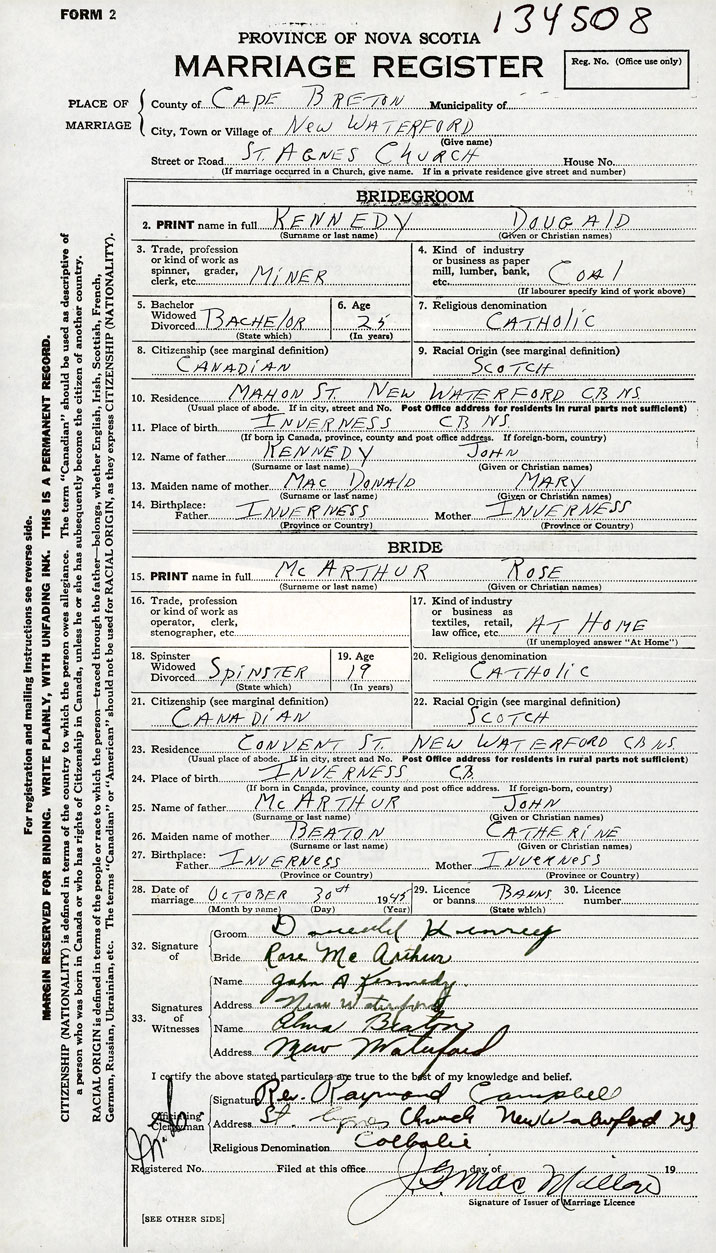 FORM 2
134508
PROVINCE OF NOVA SCOTIA
MARRIAGE REGISTER
Reg. No. (Office use only)
PLACE OF MARRIAGE
County of CAPE BRETON Municipality of
City, Town or Village of NEW WATERFORD
(Give name)
Street or Road ST. AGNES CHURCH House No.
(If marriage occurred in a Church, give name. If in a private residence give street and number)
BRIDEGROOM
2. PRINT name in full KENNEDY DOUGALD
(Surname or last name) (Given or Christian names)
3. Trade, profession or kind of work as spinner, grader, clerk, etc. MINER
4. Kind of industry or business as paper mill, lumber, bank, etc. COAL
(If labourer specify kind of work above)
5. Bachelor Widowed Divorced BACHELOR
(State which)
6. Age 25
(In years)
7. Religious denomination
CATHOLIC
8. Citizenship (see marginal definition)
CANADIAN
9. Racial Origin (see marginal definition)
SCOTCH
10. Residence MAHON ST. NEW WATERFORD CB NS.
(Usual place of abode. If in city, street and No. Post Office address for residents in rural parts not sufficient)
11. Place of birth INVERNESS CB NS.
(If born in Canada, province, county and post office address. If foreign-born, country)
12. Name of father KENNEDY JOHN
(Surname or last name) (Given or Christian names)
13. Maiden name of mother MAC DONALD MARY
(Surname or last name) (Given or Christian names)
14. Birthplace: Father INVERNESS Mother INVERNESS
(Province or Country) (Province or Country)
BRIDE
15. PRINT name in full MC ARTHUR ROSE
(Surname or last name) (Given or Christian names)
16. Trade, profession or kind of work as operator, clerk, stenographer, etc.
17. Kind of industry or business as textiles, retail, law office, etc. AT HOME
(If unemployed answer "At Home")
18. Spinster Widowed Divorced SPINSTER
(State which)
19. Age 19
(In years)
20. Religious denomination
CATHOLIC
21. Citizenship (see marginal definition)
CANADIAN
22. Racial Origin (see marginal definition)
SCOTCH
23. Residence CONVENT ST. NEW WATERFORD CB NS.
(Usual place of abode. If in city, street and No. Post Office address for residents in rural parts not sufficient)
24. Place of birth INVERNESS CB
(If born in Canada, province, county and post office address. If foreign-born, country)
25. Name of father MC ARTHUR JOHN
(Surname or last name) (Given or Christian names)
26. Maiden name of mother BEATON CATHERINE
(Surname or last name) (Given or Christian names)
27. Birthplace: Father INVERNESS Mother INVERNESS
(Province or Country) (Province or Country)
28. Date of marriage OCTOBER 30st 1945
(Month by name) (Day) (Year)
29. Licence or banns BANNS
(State which)
30. Licence number
32. Signature of
Groom
Bride Rose Mc Arthur
33. Signatures of Witnesses
Name John A Kennedy
Address New Waterford
Name Alma Beaton
Address New Waterford
I certify the above stated particulars are true to the best of my knowledge and belief.
Officiating Clergyman
Signature Rev. Raymond Campbell
Address St. Agnes Church New Waterford NS
Religious Denomination Catholic
Registered No. Filed at this office day of 19
J G Mac Millan
Signature of Issuer of Marriage Licence
[SEE OTHER SIDE]
For registration and mailing instructions see reverse side.
MARGIN RESERVED FOR BINDING. WRITE PLAINLY, WITH UNFADING INK. THIS IS A PERMANENT RECORD.
CITIZENSHIP (NATIONALITY) is defined in terms of the country to which the person owes allegiance. The term "Canadian" should be used as descriptive of
a person who was born in Canada or who has rights of Citizenship in Canada, unless he or she has subsequently become the citizen of another country.
RACIAL ORIGIN is defined in terms of the people or race to which the person—traced through the father—belongs, whether English, Irish, Scottish, French,
German, Russian, Ukrainian, etc. The terms "Canadian" or "American" should not be used for RACIAL ORIGIN, as they express CITIZENSHIP (NATIONALITY).